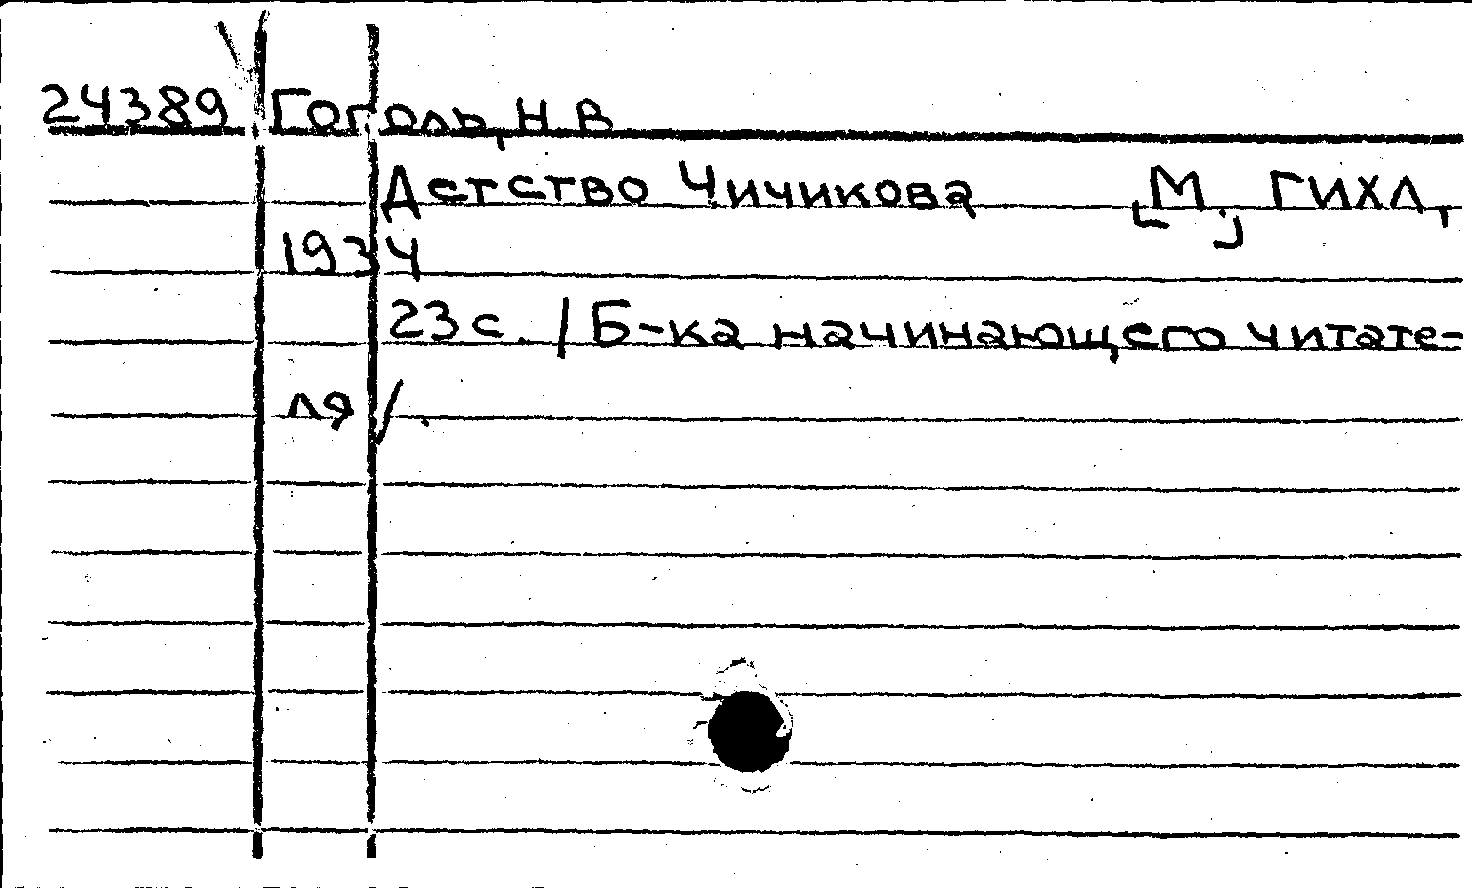 24389 Гоголь, Н В
Детство Чичикова [М.] ГИХЛ,
1934
23 с. / Б-ка начинающего читате-
ля /.